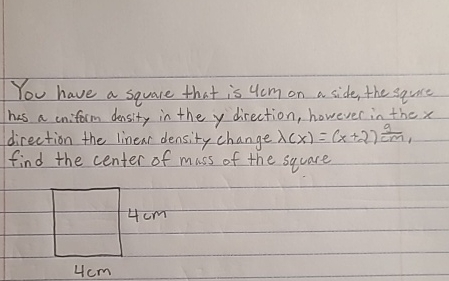 You have a square that is 4cm on a side, the square
has a uniform density in the y direction, however in the x
direction the linear density change λ(x) = (x+2) g/cm,
find the center of mass of the square
4cm
4cm